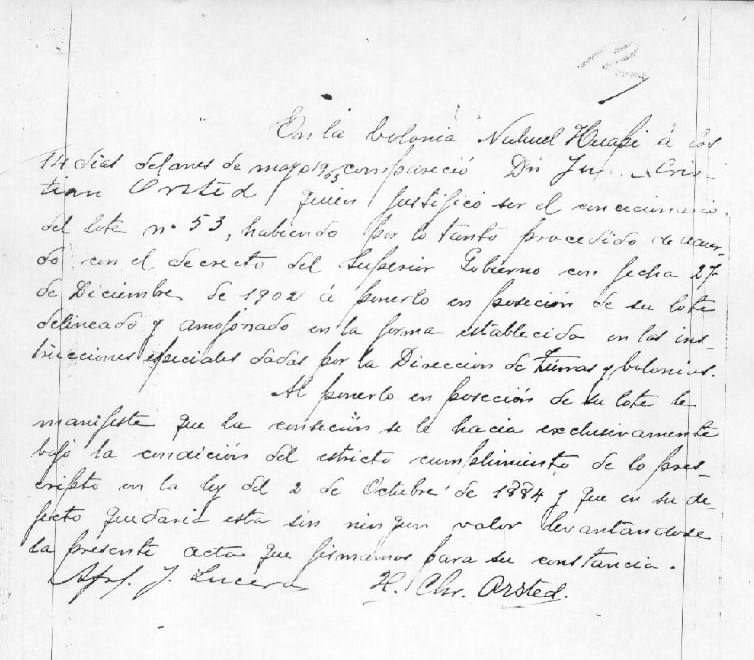 En la Colonia Nahuel Huapi á los
14 dias del mes de mayo 1903 compareció Dn Cris-
tian Orsted quien justificó ser el concecionario
del lote nº 53, habiendo por lo tanto procedido de acuer-
do con el decreto del Superior Gobierno con fecha 27
de Diciembre de 1902 á ponerlo en poseción de su lote
delineado y amojonado en la forma establecida en las ins-
trucciones especiales dadas por la Direccion de Tierras y Colonias.
Al ponerlo en poseción de su lote le
manifesté que la conseción se le hacia exclusivamente
bajo la condición del estricto cumplimiento de lo pres-
cripto en la ley del 2 de Octubre de 1884 y que en su de-
fecto quedaria esta sin ningun valor levantandose
la presente acta que firmamos para su constancia.
Apol. J. Lucero H. Chr. Orsted.